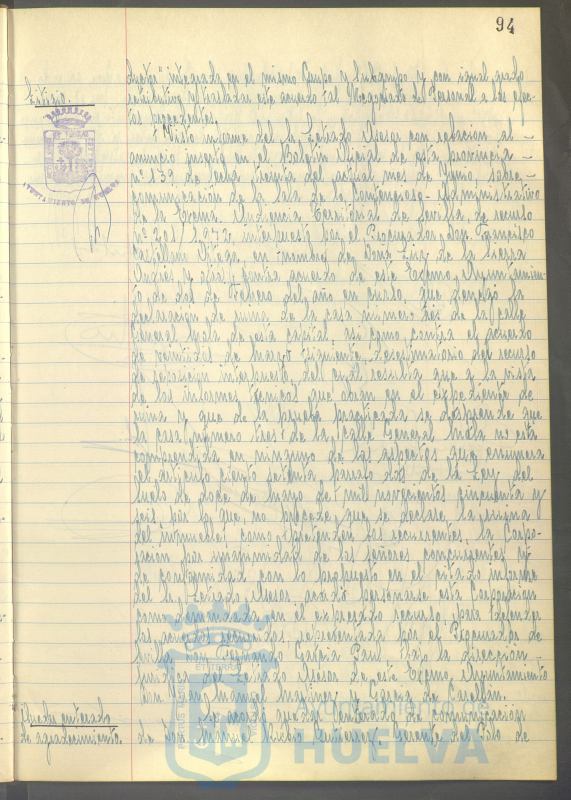 94
ductor" integrada en el mismo Grupo y Subgrupo y con igual grado
retributivo y trasladar este acuerdo tal Negociado de Personal a los efec-
tos procedentes.
Visto informe del Sr. Letrado Asesor con relación al
anuncio inserto en el Boletín Oficial de esta provincia
nº 139 de fecha treinta del actual mes de Junio, sobre
comunicación de la Sala de lo Contencioso-Administrativo
de la Excma. Audiencia Territorial de Sevilla de recurso
nº 201/1972, interpuesto por el Procurador Don Francisco
Castellano Ortega, en nombre de Don Luis de la Sierra
y otros, contra acuerdo de este Excmo. Ayuntamien-
to de dos de Febrero del año en curso, que denegó la
declaración de ruina de la casa número tres de la calle
General Mola de esta capital, así como, contra el acuerdo
de veintidós de marzo siguiente, desestimatorio del recurso
de reposición interpuesto, del cual resulta que a la vista
de los informes técnicos que obran en el expediente de
ruina y que de la prueba practicada se desprende que
la casa número tres de la calle General Mola no está
comprendida en ninguno de los aspectos que enumera
el artículo ciento setenta, párrafo dos de la Ley del
Suelo de doce de mayo de mil novecientos cincuenta y
seis por lo que, no procede que se declare la ruina
del inmueble, como pretenden los recurrentes, la Corpo-
ración por unanimidad de los señores concurrentes y
de conformidad con lo propuesto en el citado informe
del Sr. Letrado Asesor acordó personarse esta Corporación
como demandada en el expresado recurso, para defender
los acuerdos recurridos, representada por el Procurador de
Sevilla Don Fernando García Paul bajo la dirección
jurídica del Letrado Asesor de este Excmo. Ayuntamiento
Don Juan Manuel y García de
Queda enterado
de agradecimiento.
Se acordó quedar enterado de comunicación
de Don Manuel Rubio Gutiérrez, Gerente del Polo de
AYUNTAMIENTO DE HUELVA
Ayuntamiento de
HUELVA